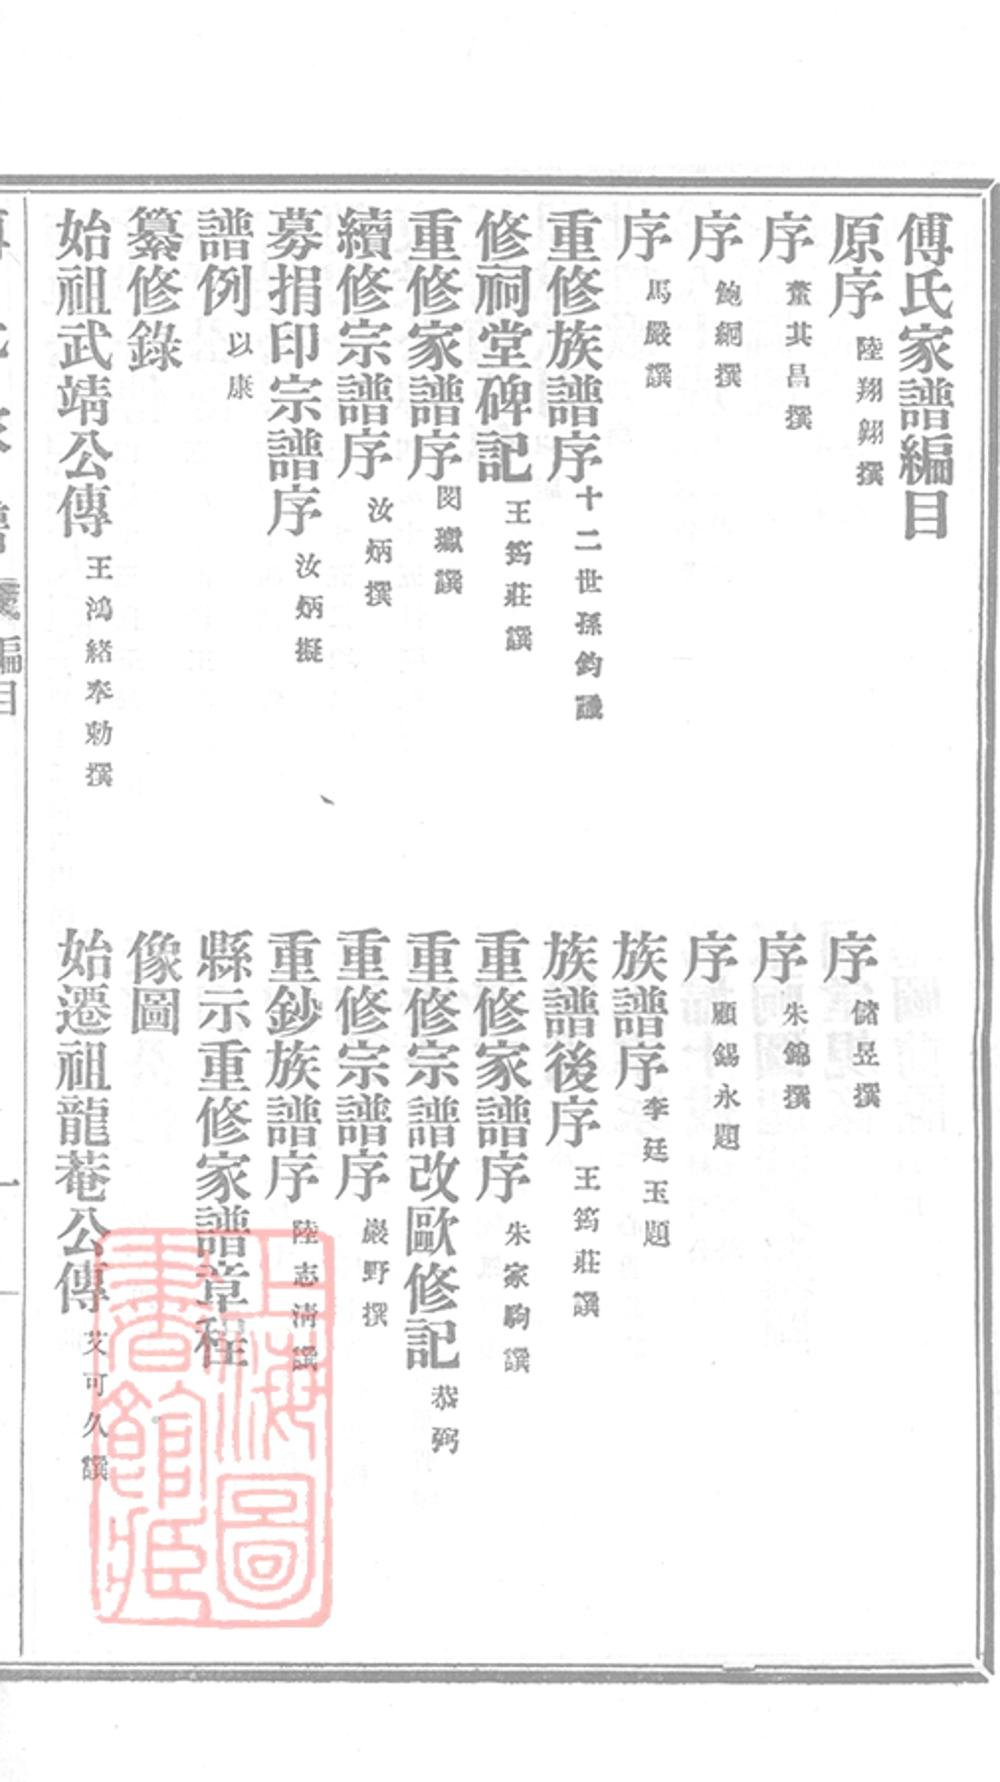 傅氏家譜編目
原序 陸翔翱撰
序 儲昱撰
序 董其昌撰
序 朱錦撰
序 鮑絅撰
序 顧錫永題
序 馬嚴譔
族譜序 李廷玉題
重修族譜序 十二世孫鈞譔
族譜後序 王筠莊譔
修祠堂碑記 王筠莊譔
重修家譜序 朱家駒譔
重修家譜序 閔瓛譔
重修宗譜改歐修記 恭弼
續修宗譜序 汝炳撰
重修宗譜序 巖野撰
募捐印宗譜序 汝炳擬
重鈔族譜序 陸志淸譔
譜例 以康
縣示重修家譜章程
纂修錄
像圖
始祖武靖公傳 王鴻緒奉勅撰
始遷祖龍菴公傳 艾可久譔
編目
一
上海圖書館藏